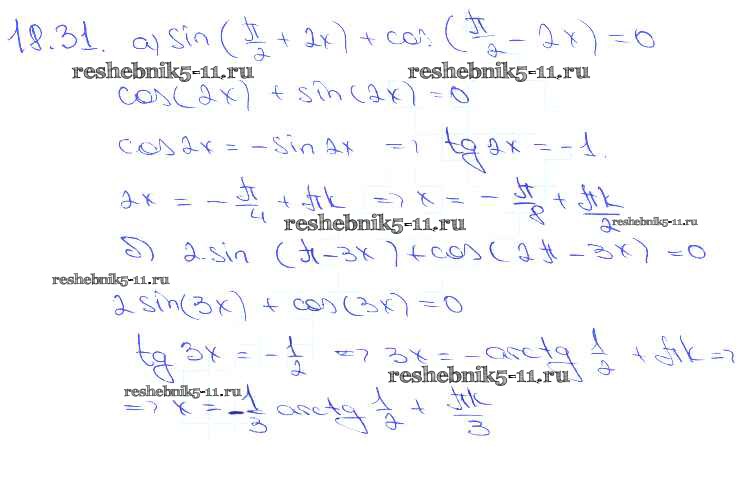 18.31. а) sin(π/2 + 2x) + cos(π/2 - 2x) = 0
reshebnik5-11.ru reshebnik5-11.ru
cos(2x) + sin(2x) = 0
cos2x = -sin 2x => tg 2x = -1.
2x = -π/4 + πk => x = -π/8 + πk/2
reshebnik5-11.ru reshebnik5-11.ru
б) 2 sin (π - 3x) + cos(2π - 3x) = 0
reshebnik5-11.ru
2 sin(3x) + cos(3x) = 0
tg 3x = -1/2 => 3x = -arctg 1/2 + πk =>
reshebnik5-11.ru
reshebnik5-11.ru
=> x = -1/3 arctg 1/2 + πk/3